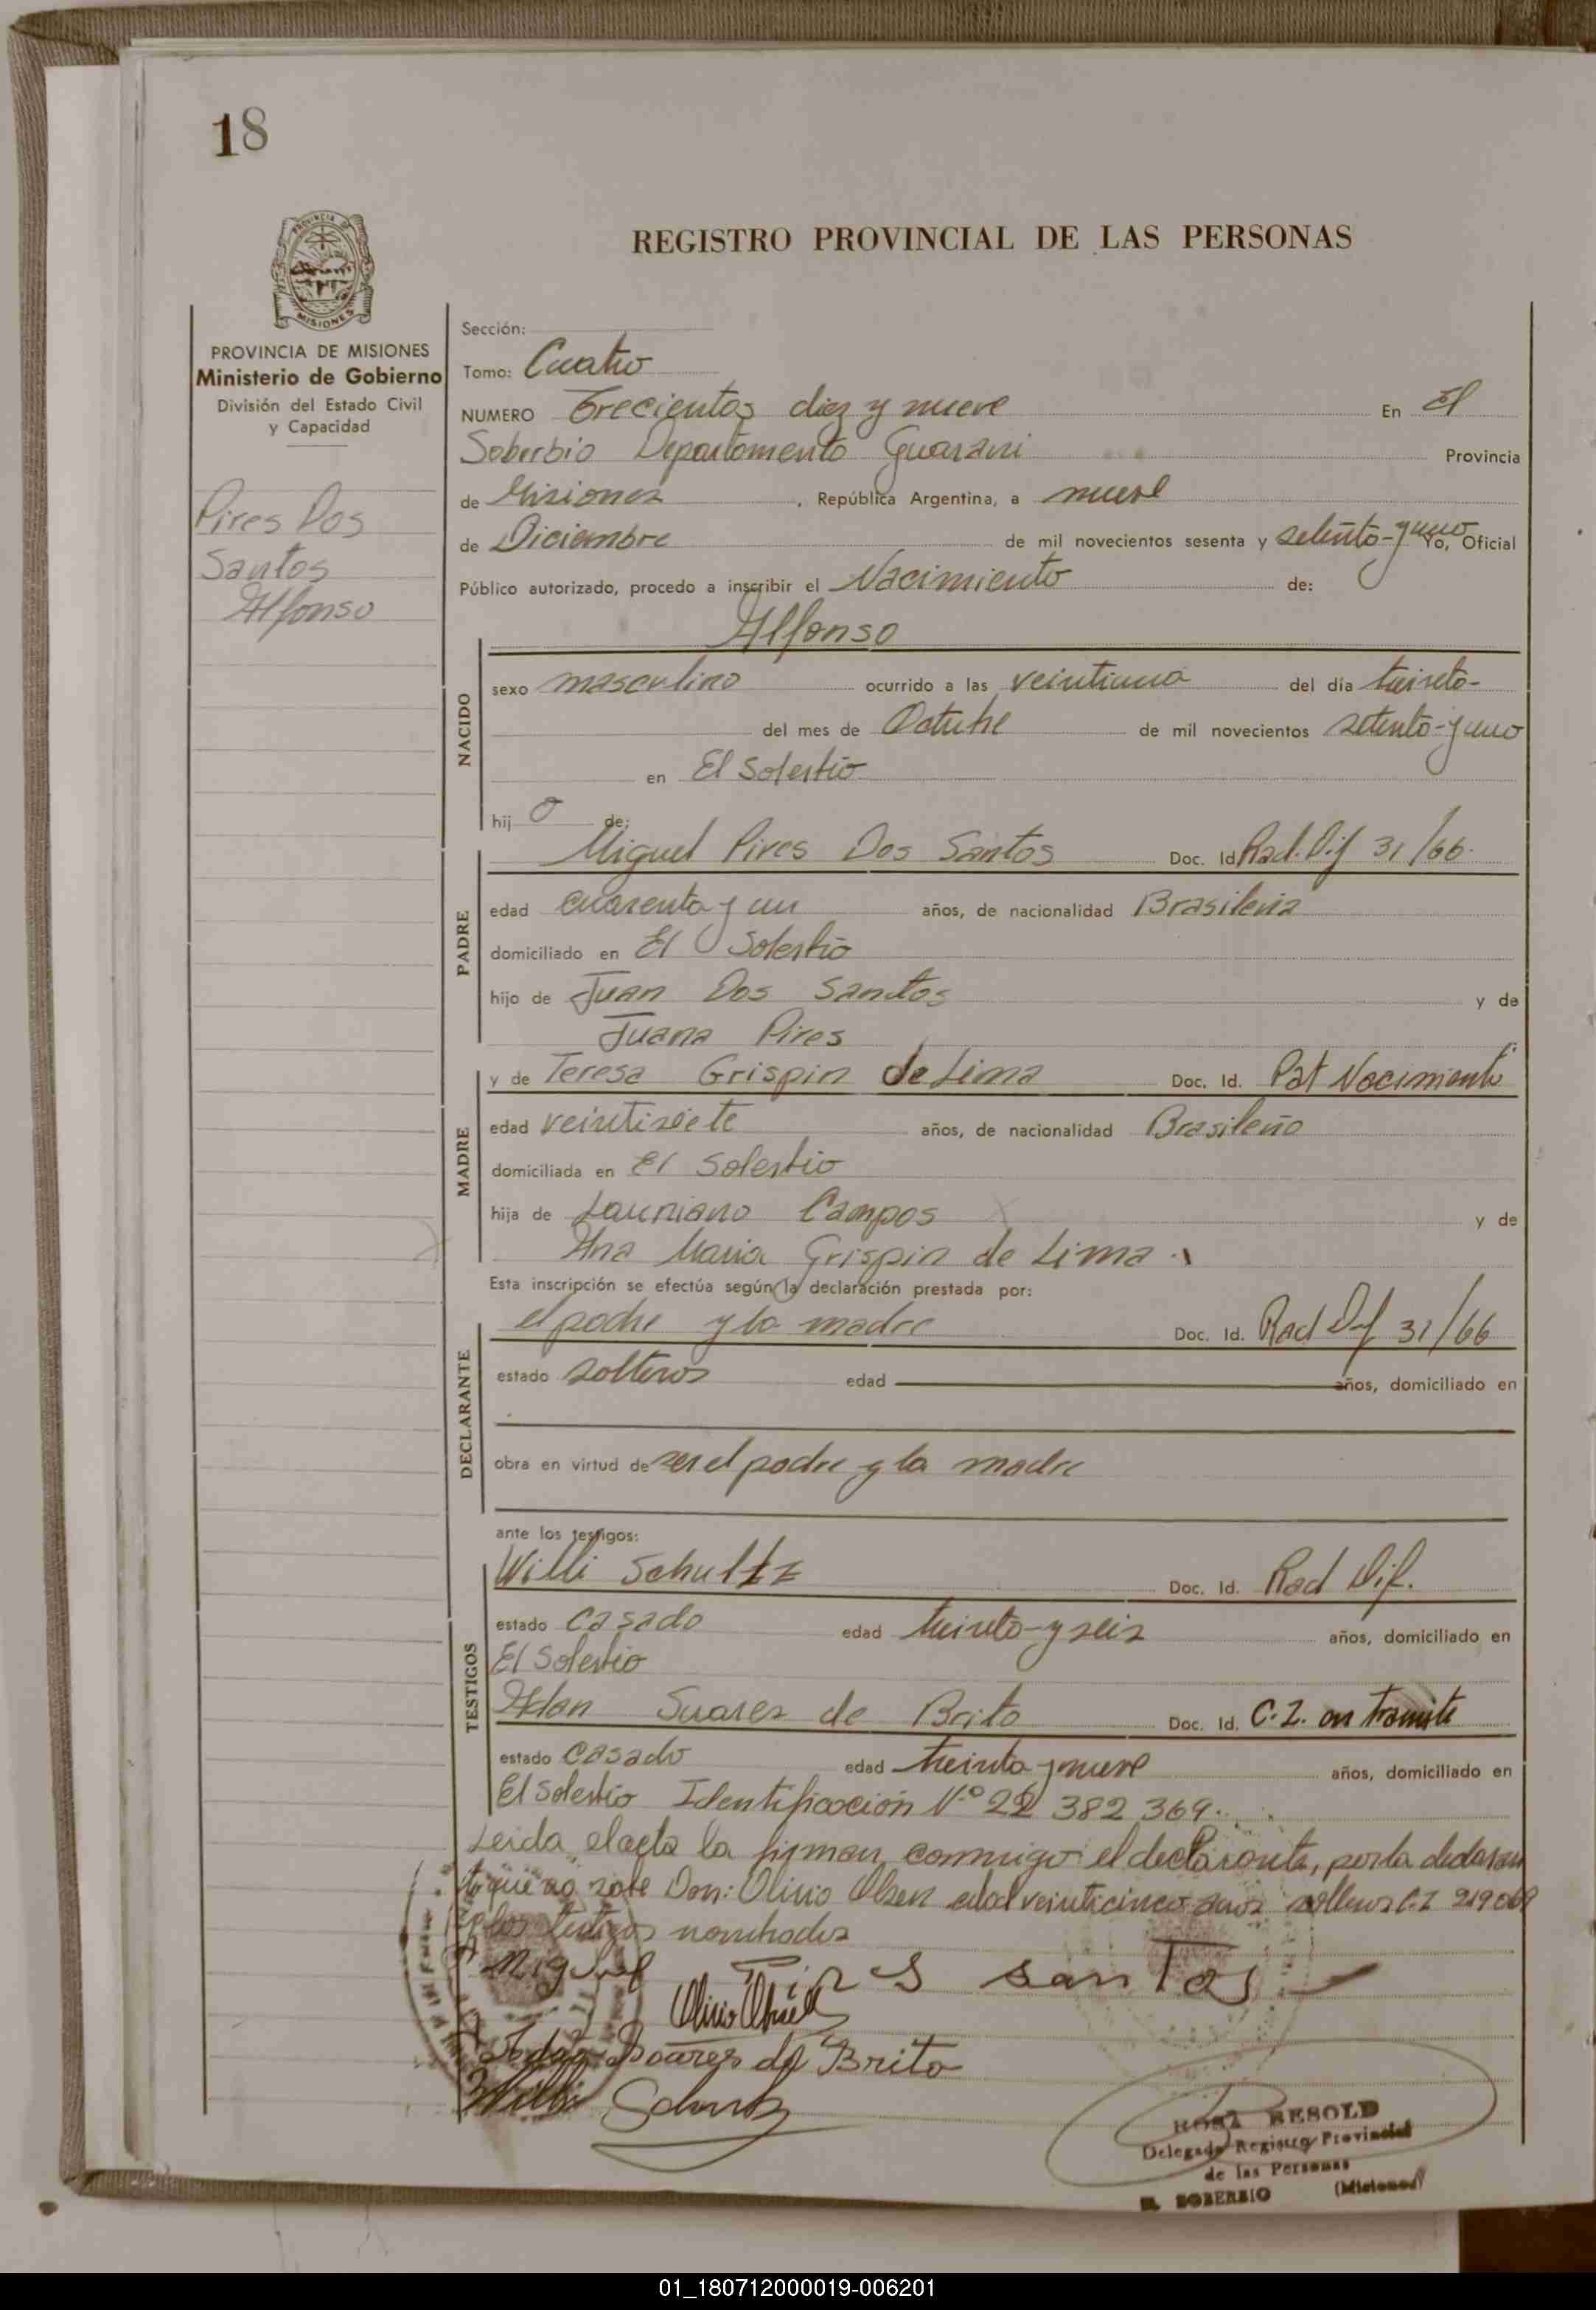 18
PROVINCIA DE
MISIONES
REGISTRO PROVINCIAL DE LAS PERSONAS
PROVINCIA DE MISIONES
Ministerio de Gobierno
División del Estado Civil
y Capacidad
Pires Dos
Santos
Alfonso
Sección:
Tomo: Cuatro
NUMERO Trecientos diez y nueve En El
Soberbio Departamento Guarani Provincia
de Misiones, República Argentina, a nueve
de Diciembre de mil novecientos sesenta y setenta y uno Yo, Oficial
Público autorizado, procedo a inscribir el Nacimiento de:
Alfonso
NACIDO
sexo masculino ocurrido a las veintiuna del día treinta-
del mes de Octubre de mil novecientos setenta y uno
en El Soberbio
hij o de:
PADRE
Miguel Pires Dos Santos Doc. Id. Rad. Dif 31/66.
edad cuarenta y un años, de nacionalidad Brasileña
domiciliado en El Soberbio
hijo de Juan Dos Santos y de
Juana Pires
MADRE
y de Teresa Grispin de Lima Doc. Id. Pat Nacimiento
edad veintisiete años, de nacionalidad Brasileño
domiciliada en El Soberbio
hija de Lauriano Campos y de
Ana Maria Grispin de Lima
Esta inscripción se efectúa según la declaración prestada por:
DECLARANTE
el padre y la madre Doc. Id. Rad Def 31/66
estado solteros edad años, domiciliado en
obra en virtud de ser el padre y la madre
ante los testigos:
TESTIGOS
Willi Schultz Doc. Id. Rad Dif.
estado casado edad treinta y seis años, domiciliado en
El Soberbio
Adan Suarez de Brito Doc. Id. C.I. en tramite
estado casado edad treinta y nueve años, domiciliado en
El Soberbio Identificación Nº 22 382 369.
Leida el acta la firman conmigo el declarante, por la declaran
te que no sabe Don: Olivio Olsen edad veinticinco años soltero C.I 219069
y los testigos nombrados
Miguel Pires santos
Adão Soares de Brito
Willi Schultz
ROSA BESOLD
Delegada Registro Provincial
de las Personas
EL SOBERBIO (Misiones)
01_180712000019-006201